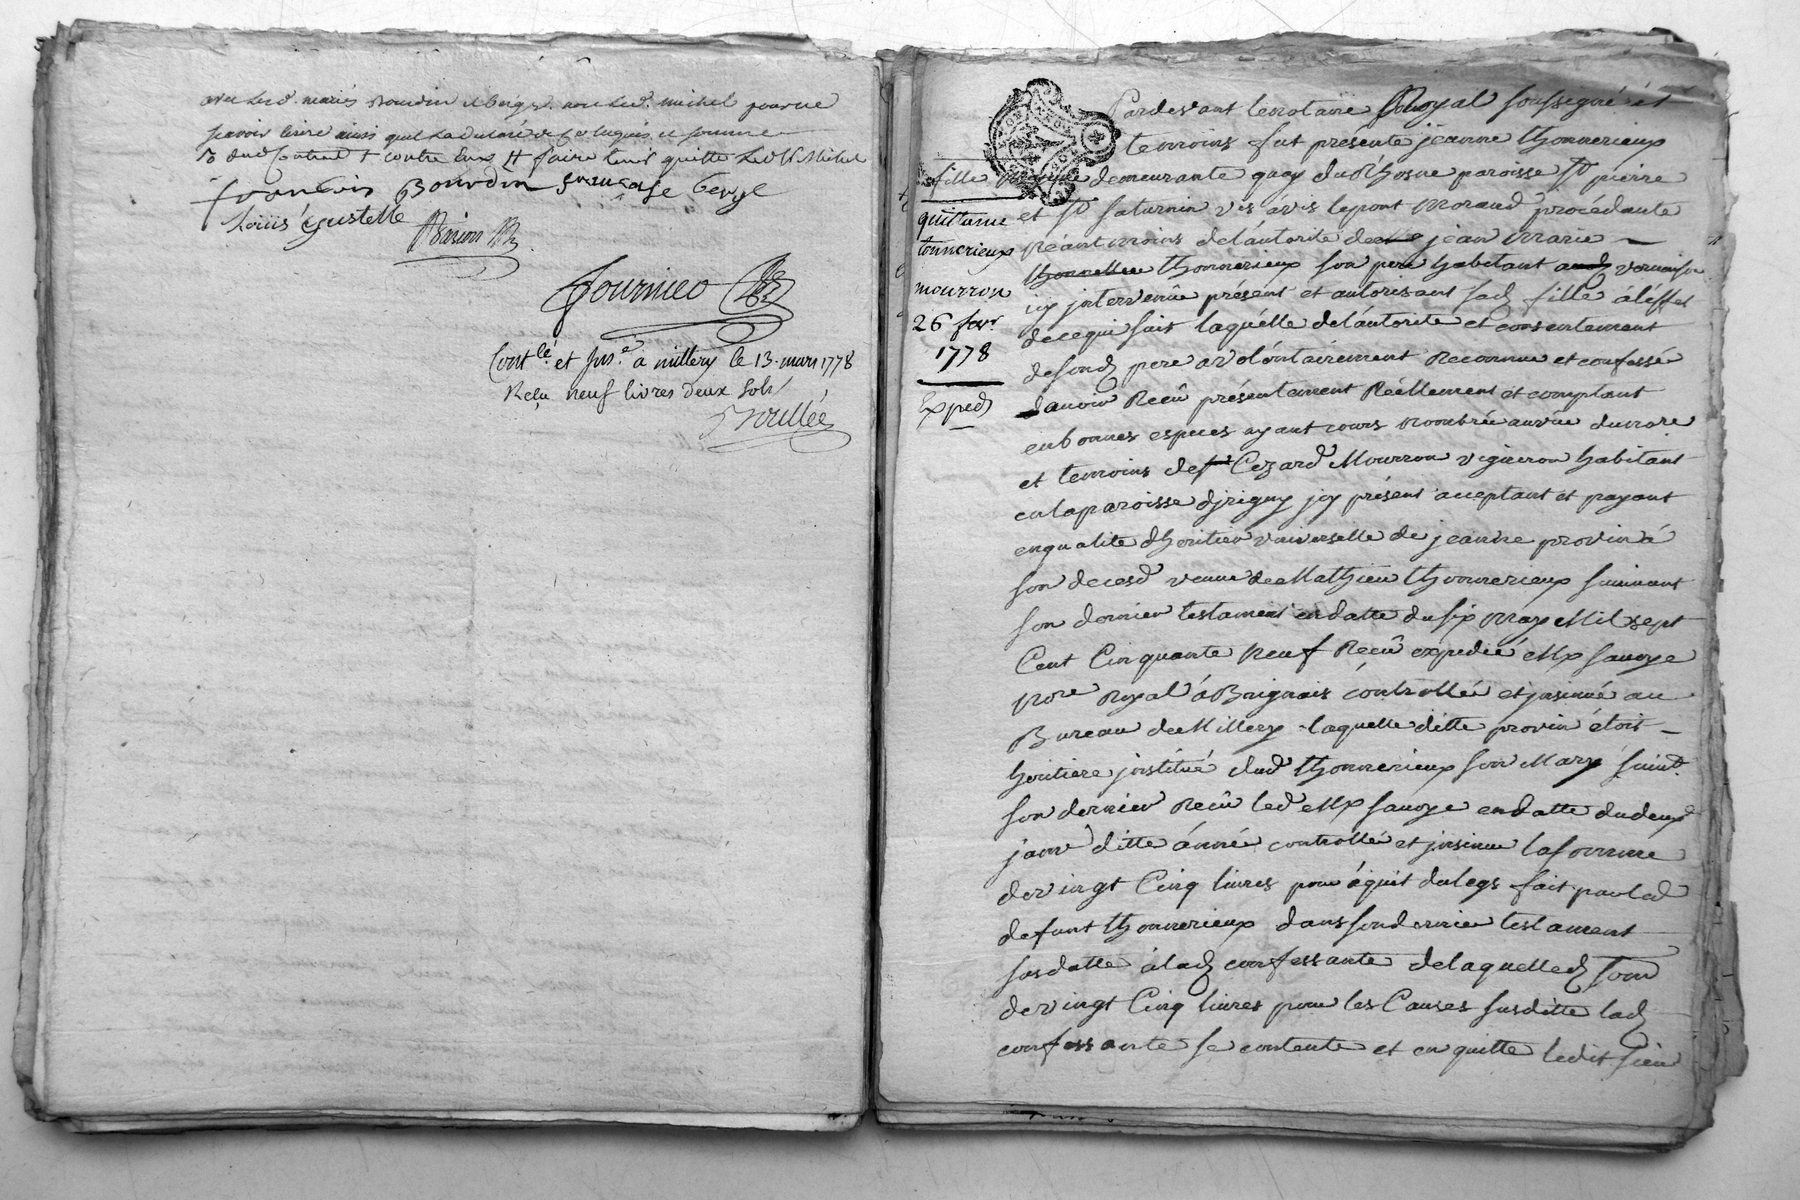 avec led. mariés Bourdin et berge non led. michel pour ne
scavoir ecrire ainsi quil la declaré de ce enquis et sommé
5 dud Contrat + contre Eux # faire tenir quitte led. Sr. Michel
francois Bourdin francoise berge
Loüis Gustelle
Fournier
Contlé et Ins.é a millery le 13. mars 1778
Reçu neuf livres deux sols
Brullée
Pardevant le notaire Royal soussigné et
temoins fut presente jeanne thonnerieux
fille demeurante quay du Rhosne paroisse St pierre
et St saturnin vis avis le pont Morand procédante
Néantmoins de l'autorite de jean Marie
thonnerieux son pere habitant a vernaison
icy intervenû présent et autorisant sad fille a l'effet
de ce qui suit laquelle de l'autorite et consentement
de sond pere a volontairement Reconnue et confessé
d'avoir Recû présentement Réellement et comptant
en bonnes especes ayant cours nombrée au vüe du nore
et temoins de Cezard Mourron vigneron habitant
en la paroisse d'jrigny jcy présent acceptant et payant
en qualite d'heritier universelle de jeanne provin a
son decesd veuve de Mathieu thonnerieux suivant
son dernier testament en datte du six may Mil sept
Cent Cinquante neuf Recû expedié Me savoye
nore Royal á Brignais controllée et jnsinué au
Bureau de Millery laquelle ditte provin étoit
heritiere jnstitué dud thonnerieux son Mary suivt
son dernier Recû led Me savoye en datte du deux
janvr ditte année controllé et jnsinue la somme
de vingt Cinq livres pour aquit du legs fait par led
defunt thonnerieux dans son dernier testament
susdatte a lad confessante de laquelle d som
de vingt Cinq livres pour les Causes susditte lad
confessante se contente et en quitte ledit sieu
quittance
tonnerieux
mourron
26 fevr
1778
Exped